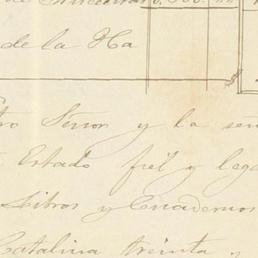 de la Ha
tro Señor y la
Estado fiel y lega
Libros y Cuadernos
Catalina treinta y